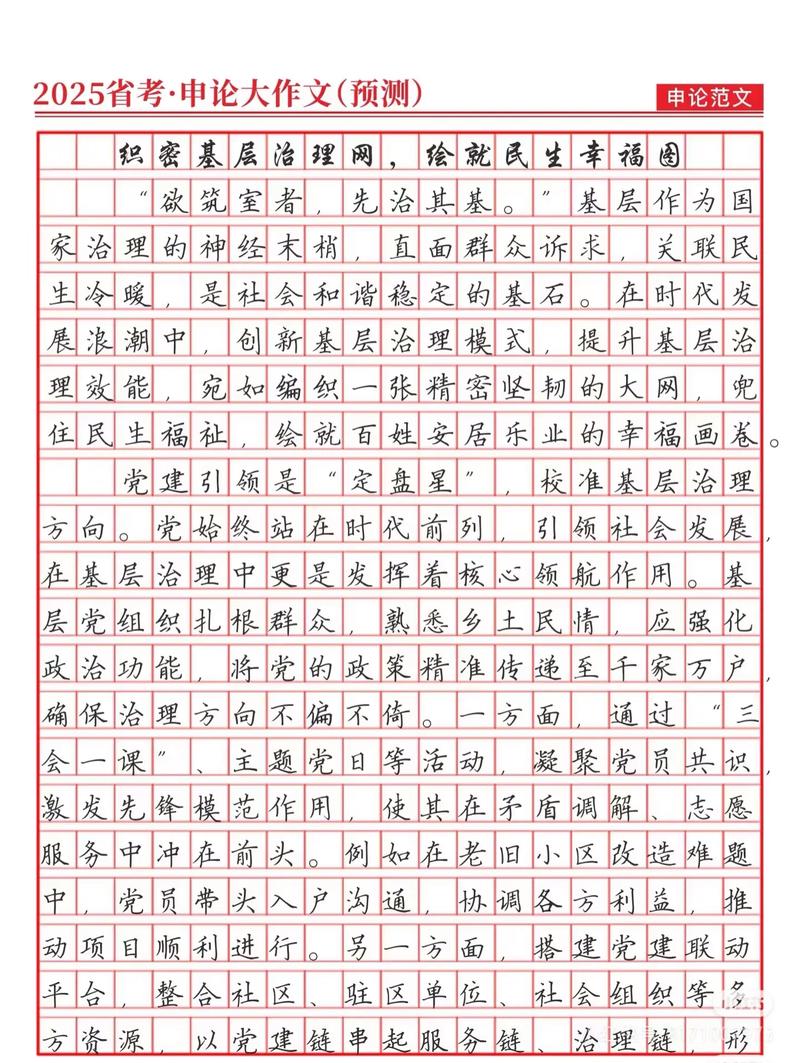 2025省考·申论大作文(预测)
申论范文
织密基层治理网，绘就民生幸福图
“欲筑室者，先治其基。”基层作为国
家治理的神经末梢，直面群众诉求，关联民
生冷暖，是社会和谐稳定的基石。在时代发
展浪潮中，创新基层治理模式，提升基层治
理效能，宛如编织一张精密坚韧的大网，兜
住民生福祉，绘就百姓安居乐业的幸福画卷。
党建引领是“定盘星”，校准基层治理
方向。党始终站在时代前列，引领社会发展，
在基层治理中更是发挥着核心领航作用。基
层党组织扎根群众，熟悉乡土民情，应强化
政治功能，将党的政策精准传递至千家万户，
确保治理方向不偏不倚。一方面，通过“三
会一课”、主题党日等活动，凝聚党员共识，
激发先锋模范作用，使其在矛盾调解、志愿
服务中冲在前头。例如在老旧小区改造难题
中，党员带头入户沟通，协调各方利益，推
动项目顺利进行。另一方面，搭建党建联动
平台，整合社区、驻区单位、社会组织等多
方资源，以党建链串起服务链、治理链，形